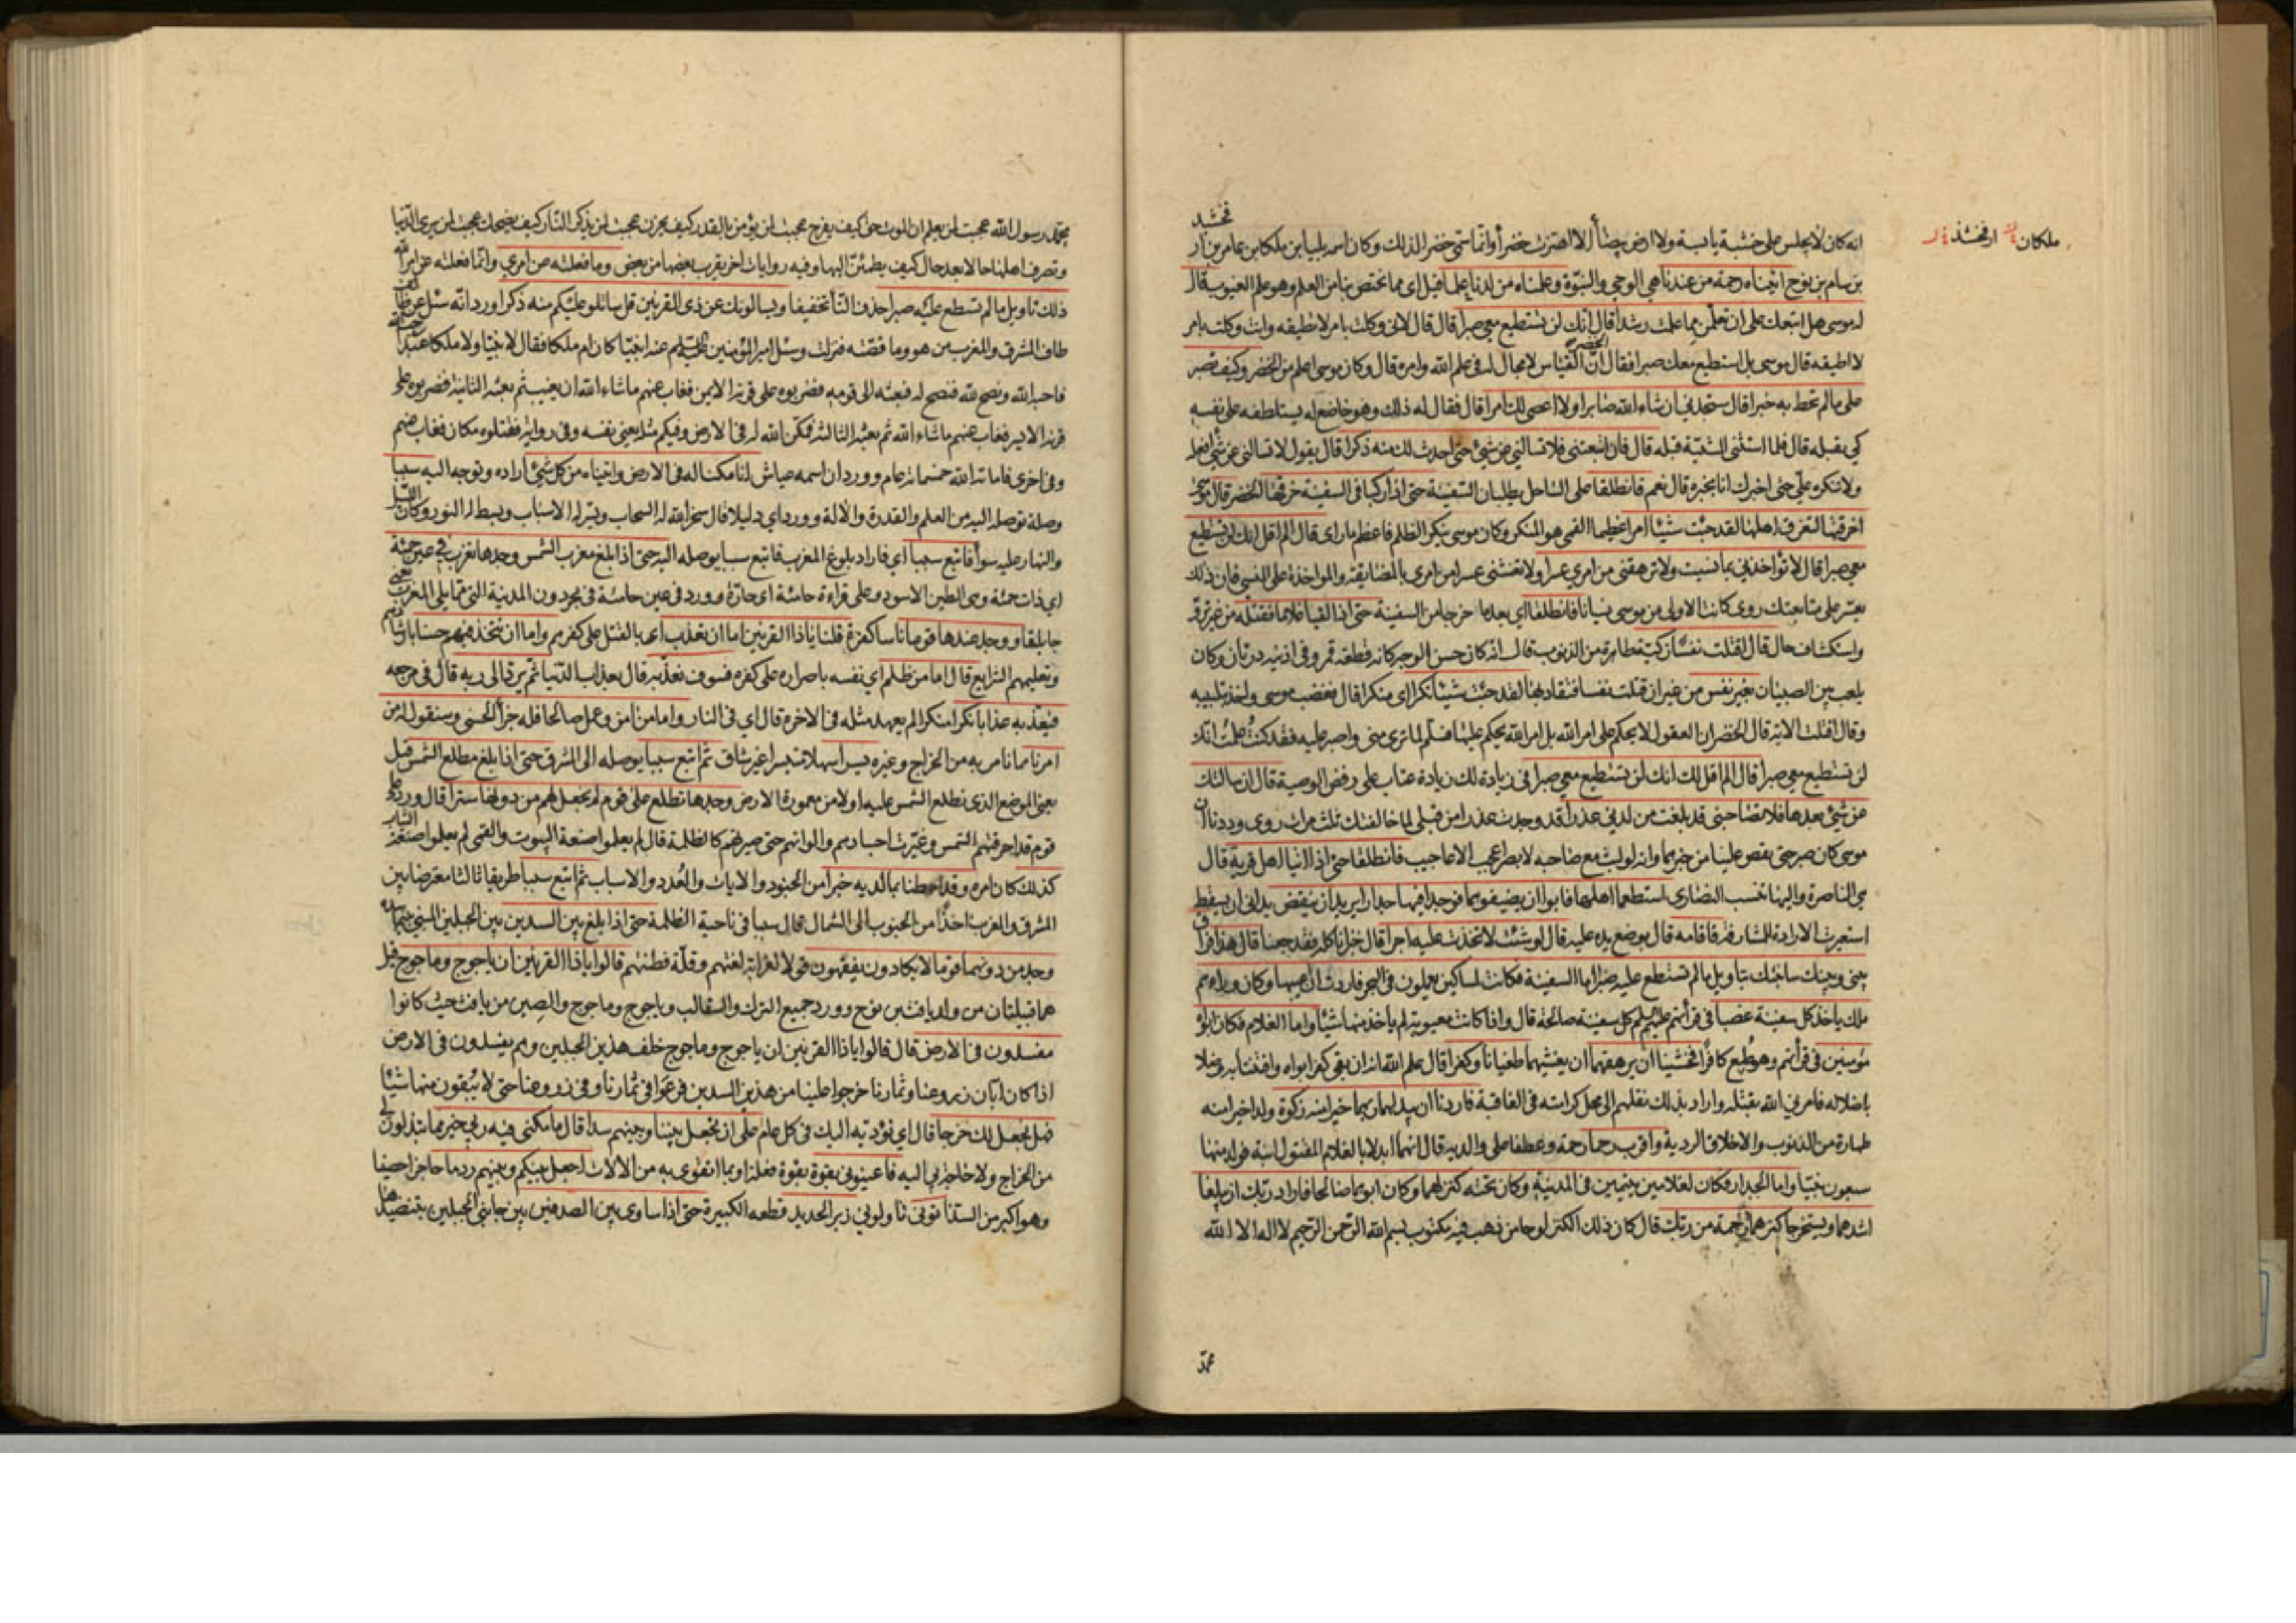 انه كان لا يجلس على خشبة يابسة ولا ارض بيضاً الا اهتزت خضراً وانما سمي خضر الذلك وكان اسمه بليا بن ملكا بن عامر بن ار
فخشد
ملكان ارفخشذ
بن سام بن نوح اتيناه رحمة من عندنا هي الوحي والنبوة وعلمناه من لدنا علما قيل اى مما يختص بنا من العلم وهو علم الغيوب قال
له موسى هل اتبعك على ان تعلمن مما علمت رشدا قال انك لن تستطيع معي صبرا قال قال لانى وكلت بامر لا تطيقه وانت وكلت بامر
لا اطيقه قال موسى بل استطيع معك صبرا فقال الخضر ان القياس لا مجال له في علم الله وامره قال وكان موسى اعلم من الخضر وكيف تصبر
على مالم تحط به خبرا قال ستجدني ان شاء الله صابرا ولا اعصى لك امرا قال فقال له ذلك وهو خاضع له يستلطفه على نفسه
كي يقبله قال فلما استثنى المشية قبله قال فان اتبعتنى فلا تسالني عن شيئ حتى احدث لك منه ذكرا قال يقول لا تسالنى عن شئ افعله
ولا تنكره علّى حتى اخبرك انا بخبره قال نعم فانطلقا على الساحل يطلبان السفينة حتى اذا ركبا في السفينة خرقها الخضر قال موسى
اخرقتها لتغرق اهلها لقد جئت شيئا امرا عظيما القمي هو المنكر وكان موسى ينكر الظلم فاعظم ما راى قال الم اقل انك لن تستطيع
معي صبرا قال لا تؤاخذني بما نسيت ولا ترهقني من امري عسرا ولا تغشنى عسرا من امرى بالمضايقة والمواخذة على المنسي فان ذلك
يعسر على متابعتك روى كانت الاولى من موسى نسيانا فانطلقا اي بعد ما خرجا من السفينة حتى اذا لقيا غلاما فقتله من غير ترو
واستكشاف حال قال اقتلت نفسا زكية طاهرة من الذنوب قال انه كان حسن الوجه كانه قطعة قمر وفى اذنيه درتان وكان
يلعب بين الصبيان بغير نفس من غير ان قتلت نفسا فتقاد بها لقد جئت شيئا نكرا اى منكرا قال فغضب موسى واخذ بتلبيبه
وقال اقتلت الاية قال الخضر ان العقول لا يحكم على امر الله بل امر الله يحكم عليها فسلم لما ترى منى واصبر عليه فقد كنت علمت انك
لن تستطيع معي صبرا قال الم اقل لك انك لن تستطيع معي صبرا في زيادة لك زيادة عتاب على رفض الوصية قال ان سالتك
عن شئ بعدها فلا تصاحبنى قد بلغت من لدني عذرا قد وجدت عذرا من قبلى لما خالفتك ثلث مرات روى وددنا ان
موسى كان صبر حتى يقص علينا من خبرهما وانه لو لبث مع صاحبه لابصر اعجب الاعاجيب فانطلقا حتى اذا اتيا اهل قرية قال
هي الناصرة واليها تنسب النصارى استطعما اهلها فابوا ان يضيفوهما فوجدا فيها جدارا يريد ان ينقض يدانى ان يسقط
استعيرت الارادة للمشارفة فاقامه قال بوضع يده عليه قال لو شئت لاتخذت عليه اجرا قال خبزا ناكله فقد جعنا قال هذا فراق
بينى وبينك سانبئك بتاويل مالم تستطع عليه صبرا اما السفينة فكانت لمساكين يعملون فى البحر فاردت ان اعيبها وكان وراءهم
ملك ياخذ كل سفينة غصبا في قرأتهم عليهم السلم كل سفينة صالحة قال واذا كانت معيوبة لم ياخذ منها شيئا واما الغلام فكان ابواه
مؤمنين في قرأتهم وهو طبع كافرا فخشينا ان يرهقهما ان يغشيهما طغيانا وكفرا قال علم الله انه ان بقى كفر ابواه وافتتنا به وضلا
باضلاله فامرني الله بقتله واراد بذلك نقلهم الى محل كرامته في العاقبة فاردنا ان يبدلهما ربهما خيرا منه زكوة ولدا خيرا منه
طهارة من الذنوب والاخلاق الردية واقرب رحما رحمة وعطفا على والديه قال انهما ابدلا بالغلام المقتول ابنة فولد منها
سبعون نبيا واما الجدار فكان لغلامين يتيمين في المدينة وكان تحته كنز لهما وكان ابوهما صالحا فاراد ربك ان يبلغا
اشدهما ويستخرجا كنزهما رحمة من ربك قال كان ذلك الكنز لوحا من ذهب فيه مكتوب بسم الله الرحمن الرحيم لا اله الا الله
محمد
محمد رسول الله عجبت لمن يعلم ان الموت حق كيف يفرح عجبت لمن يؤمن بالقدر كيف يحزن عجبت لمن يذكر النار كيف يضحك عجبت لمن يرى الدنيا
وتصرف اهلها حالا بعد حال كيف يطمئن اليها وفيه روايات اخر يقرب بعضها من بعض وما فعلته عن امري وانما فعلته عن امر الله
ذلك تاويل ما لم تسطع عليه صبرا حذف التاء تخفيفا ويسالونك عن ذى القرنين قل ساتلو عليكم منه ذكرا ورد انه سئل عن
طاف المشرق والمغرب من هو وما قصته فنزلت وسئل امير المؤمنين عليه السلام عنه انبيا كان ام ملكا فقال لا نبيا ولا ملكا عبد
فاحبه الله ونصح لله فنصح له فبعثه الى قومه فضربوه على قرنه الايمن فغاب عنهم ماشاء الله ان يغيب ثم بعثه الثانية فضربوه على
قرنه الايسر فغاب عنهم ماشاء الله ثم بعثه الثالثة فمكن الله له فى الارض وفيكم مثله يعني نفسه وفى رواية فقتلوه مكان فغاب عنهم
وفى اخرى فاماته الله خمسمائة عام وورد ان اسمه عياش انا مكنا له فى الارض واتيناه من كل شئ اراده وتوجه اليه سببا
وصلة توصله اليه من العلم والقدرة والالة وورد اي دليلا قال سخر الله له السحاب ويسر له الاسباب وبسط له النور وكان الليل
والنهار عليه سوأ فاتبع سببا اي فاراد بلوغ المغرب فاتبع سببا يوصله اليه حتى اذا بلغ مغرب الشمس وجدها تغرب في عين حمئة
اي ذات حمئة وهى الطين الاسود وعلى قراءة حامئة اى حارة وورد فى عين حامئة فى بحر دون المدينة التى مما يلي المغرب يعنى
جابلقا ووجد عندها قوما ناسا كفرة قلنا يا ذا القرنين اما ان تعذب اى بالقتل على كفرهم واما ان تتخذ فيهم حسنا بارشادهم
وتعليمهم الشرايع قال اما من ظلم اي نفسه باصراره على كفره فسوف نعذبه قال بعذاب الدنيا ثم يرد الى ربه قال في مرجعه
فيعذبه عذابا نكرا منكرا لم يعهد مثله فى الاخرة قال اي فى النار واما من امن وعمل صالحا فله جزأ الحسنى وسنقول له من
امرنا مما نامر به من الخراج وغيره يسرا سهلا متيسرا غير شاق ثم اتبع سببا يوصله الى المشرق حتى اذا بلغ مطلع الشمس قيل
يعنى الموضع الذى تطلع الشمس عليه اولا من معمورة الارض وجدها تطلع على قوم لم يجعل لهم من دونها سترا قال ورد على
قوم قد احرقتهم الشمس وغيرت اجسادهم والوانهم حتى صيرتهم كالظلمة قال لم يعلموا صنعة البيوت والقمي لم يعلموا صنعة الثياب
كذلك كان امره وقد احطنا بما لديه خبرا من الجنود والايات والعدد والاسباب ثم اتبع سببا طريقا ثالثا معترضا بين
المشرق والمغرب اخذا من الجنوب الى الشمال قال سببا في ناحية الظلمة حتى اذا بلغ بين السدين بين الجبلين المبني بينهما سده
وجد من دونهما قوما لا يكادون يفقهون قولا لغرابة لغتهم وقلة فطنتهم قالوا يا ذا القرنين ان ياجوج وماجوج قيل
هما قبيلتان من ولد يافث بن نوح وورد جميع الترك والسقالب وياجوج وماجوج والصين من يافث حيث كانوا
مفسدون فى الارض قال قالوا يا ذا القرنين ان ياجوج وماجوج خلف هذين الجبلين وهم يفسدون فى الارض
اذا كان ابان زروعنا وثمارنا خرجوا علينا من هذين السدين فرعوا في ثمارنا وفى زروعنا حتى لا يبقون منها شيئا
فهل نجعل لك خرجا قال اي نؤديه اليك فى كل عام على ان تجعل بيننا وبينهم سدا قال ما مكنى فيه ربي خير مما تبذلون لى
من الخراج ولا حاجة بي اليه فاعينوني بقوة بقوة فعلة او بما اتقوى به من الالات اجعل بينكم وبينهم ردما حاجزا حصينا
وهو اكبر من السد اتوني ناولوني زبر الحديد قطعه الكبيرة حتى اذا ساوى بين الصدفين بين جانبي الجبلين بتنضيدها